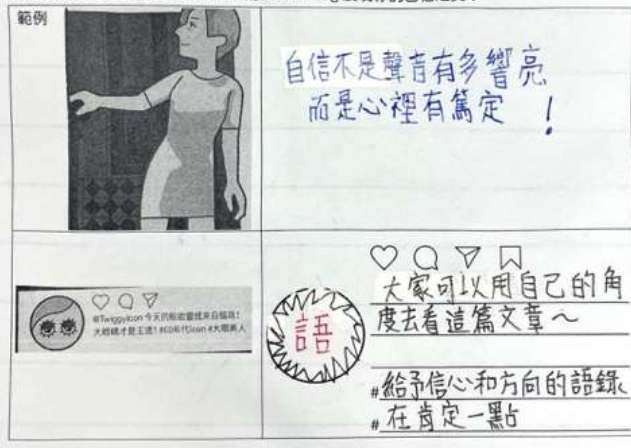 範例
自信不是聲音有多響亮
而是心裡有篤定!
@TwiggyIcon
大眼睛才是王道!#60年代icon #大眼美人
語
大家可以用自己的角
度去看這篇文章~
#給予信心和方向的語錄
#在肯定一點